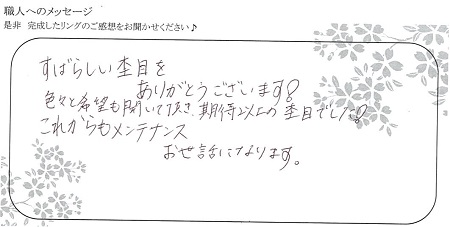 職人へのメッセージ
是非 完成したリングのご感想をお聞かせください♪
すばらしい杢目を
ありがとうございます!
色々と希望も聞いて頂き、期待以上の杢目でした!
これからもメンテナンス
お世話になります。